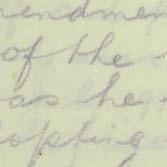 endmen
of the
as he
opting